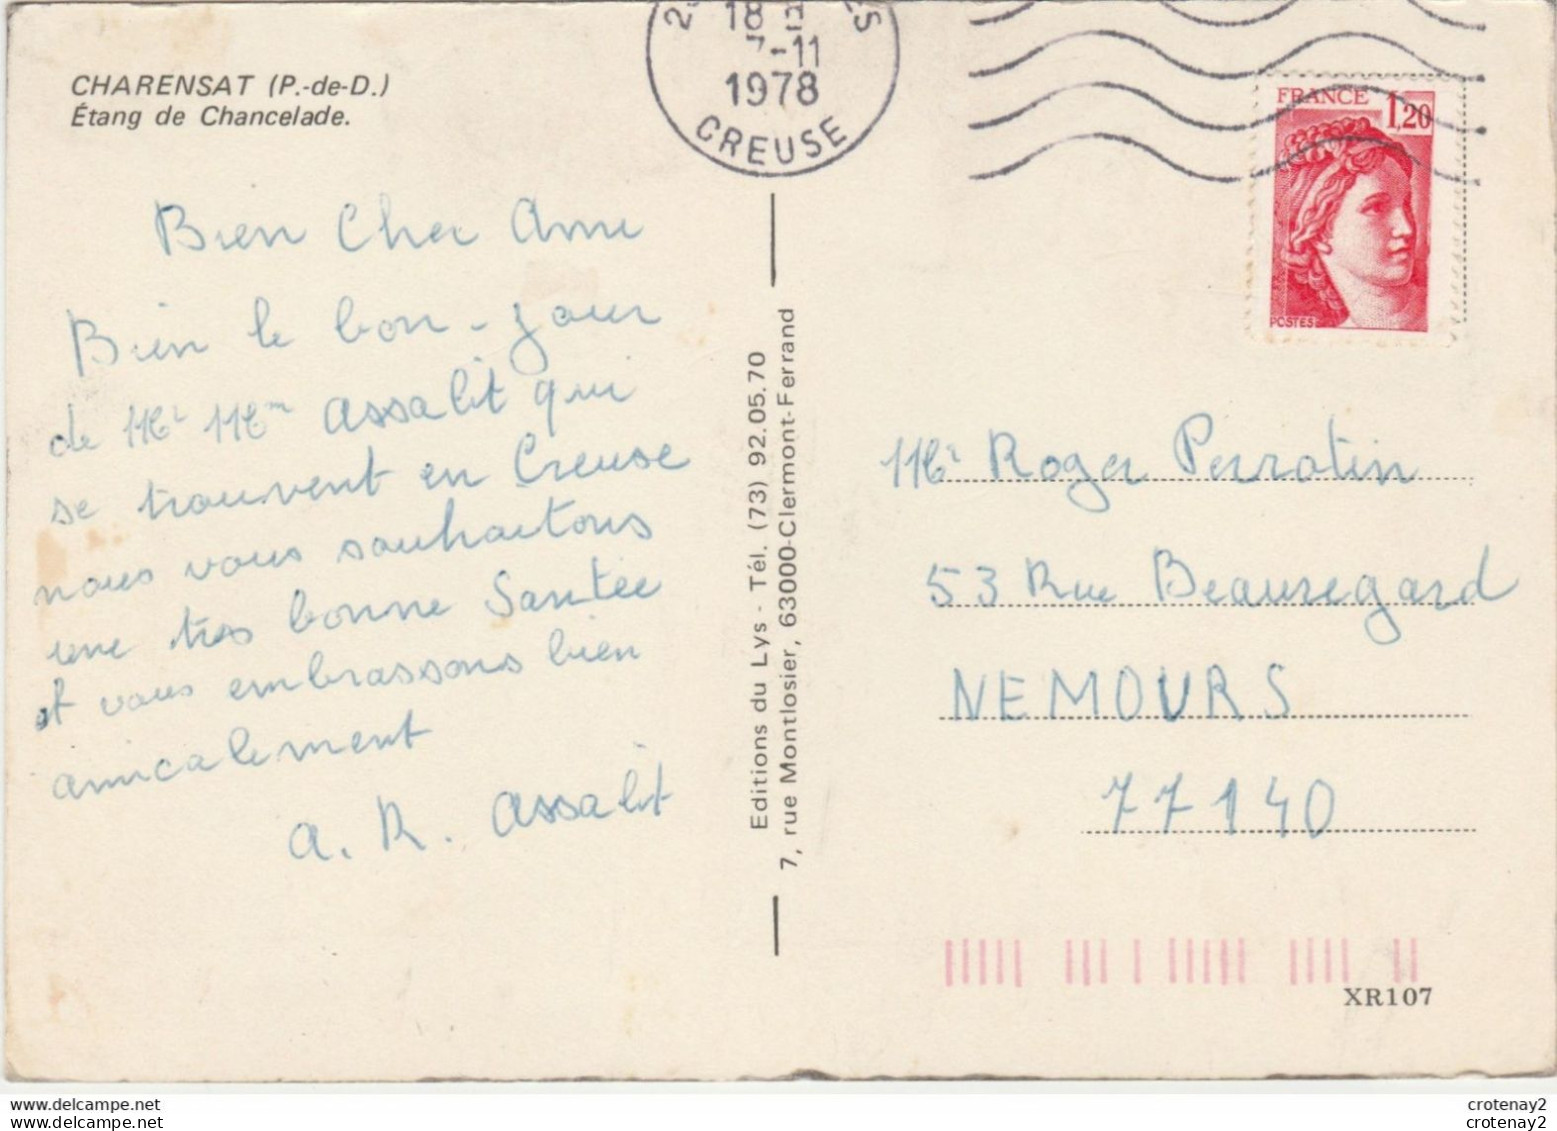 CHARENSAT (P.-de-D.)
Étang de Chancelade.
18
7-11
1978
CREUSE
FRANCE 1,20
POSTES
Bien Cher Ami
Bien le bon-jour
de Mr Mme Assalit qui
se trouvent en Creuse
nous vous souhaitons
une tres bonne Santée
et vous embrassons bien
amicalement
A. R. Assalit
Editions du Lys - Tél. (73) 92.05.70
7, rue Montlosier, 63000-Clermont-Ferrand
Mr Roger Perrotin
53 Rue Beauregard
NEMOURS
77140
XR107
delcampe.net
delcampe.net
crotenay2
crotenay2